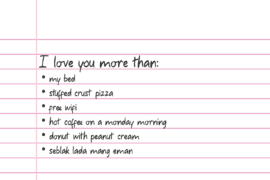 I love you more than:
• my bed
• stuffed crust pizza
• free wifi
• hot coffee on a monday morning
• donut with peanut cream
• seblak lada mang eman